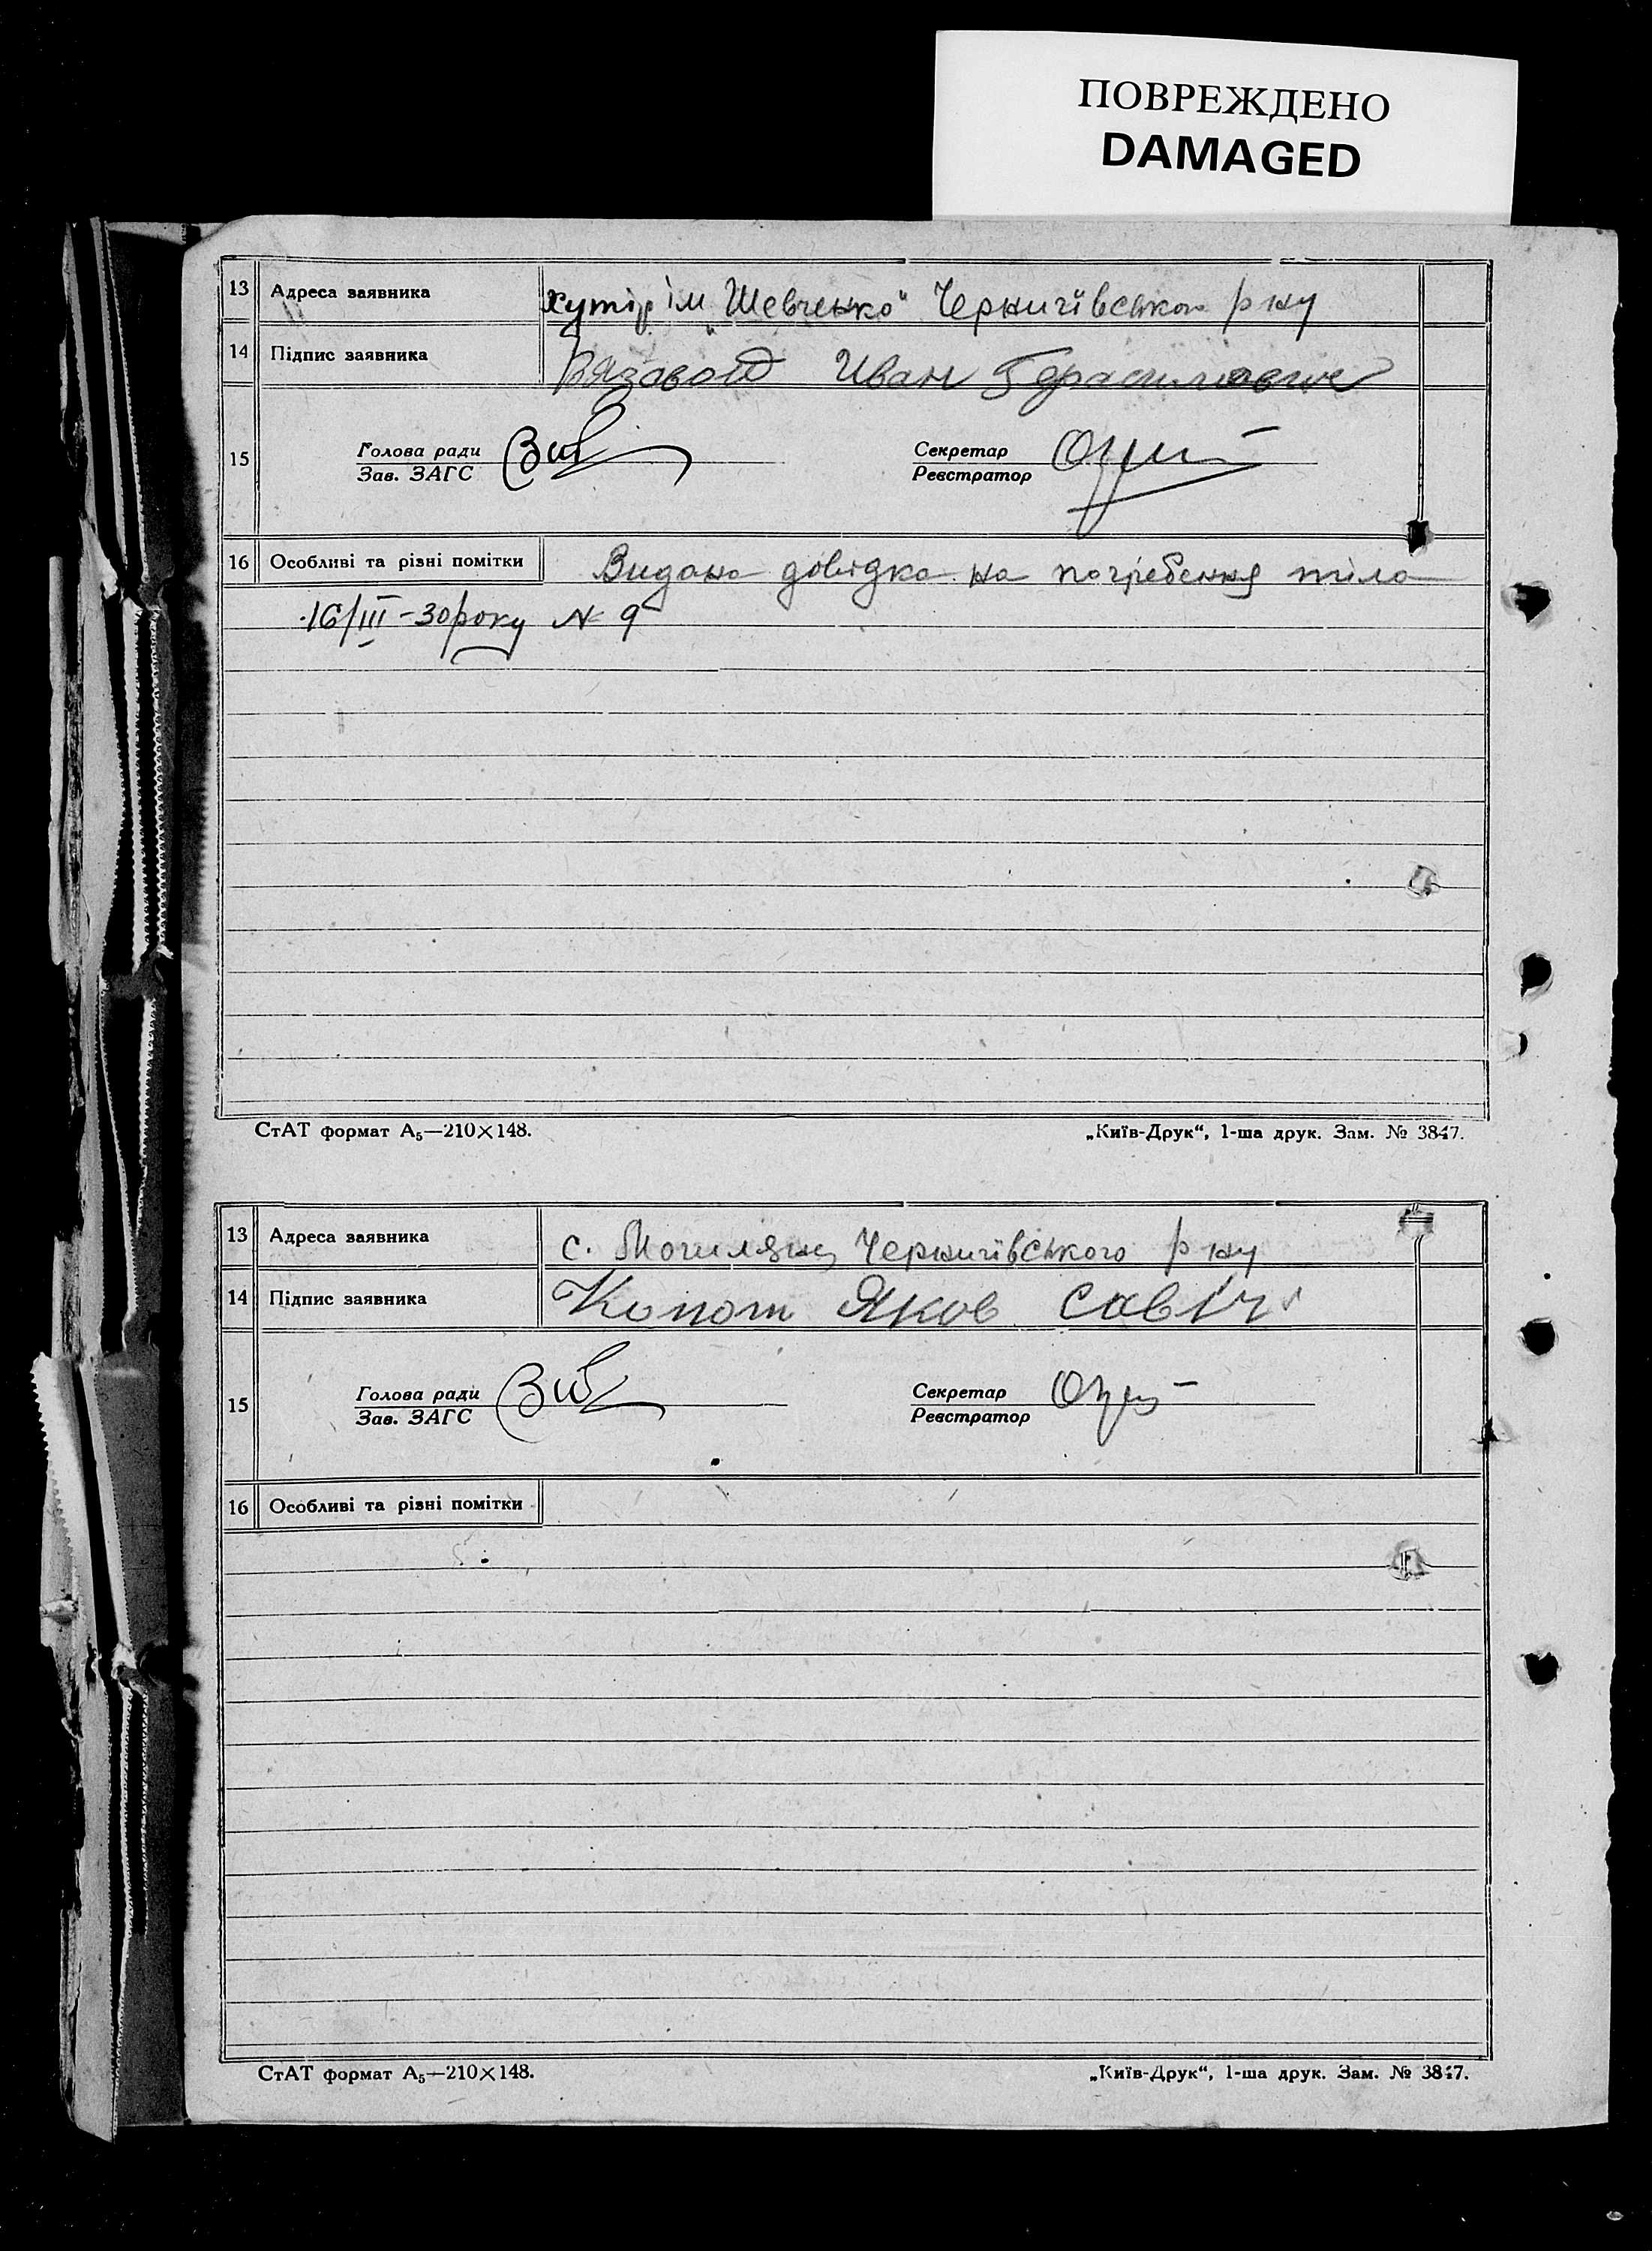 ПОВРЕЖДЕНО
DAMAGED
13 Адреса заявника хутір ім „Шевченко“ Чернигівського р ну
14 Підпис заявника Иван Герасимович
15 Голова ради Секретар
Зав. ЗАГС Реєстратор
16 Особливі та різні помітки Видана довідка на погребення тіла
16/III-30 року № 9
СтАТ формат А₅—210×148. „Київ-Друк“, 1-ша друк. Зам. № 3847.
13 Адреса заявника с. Чернигівського р ну
14 Підпис заявника Копот Яков Савіч
15 Голова ради Секретар
Зав. ЗАГС Реєстратор
16 Особливі та різні помітки
СтАТ формат А₅—210×148. „Київ-Друк“, 1-ша друк. Зам. № 3847.